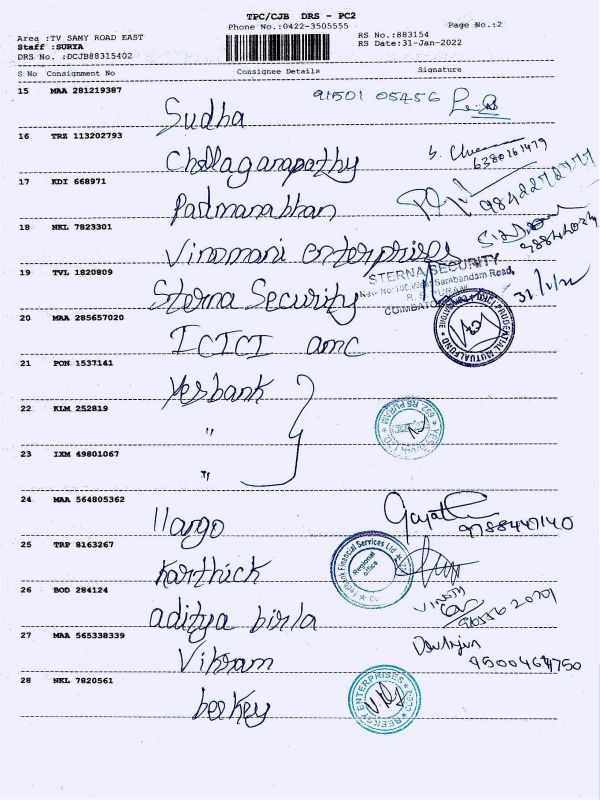 TPC/CJB DRS - PC2
Phone No.:0422-3505555
Page No.:2
Area :TV SAMY ROAD EAST
Staff :SURYA
DRS No. :DCJB88315402
RS No.:883154
RS Date:31-Jan-2022
S No Consignment No Consignee Details Signature
15 MAA 281219387
Sudha 91501 05456
16 TRZ 113202793
Chellaganapathy 6380261479
17 KDI 668971
Padmanabhan
18 NKL 7823301
Vinamani enterprises
19 TVL 1820809
Sterna Security
STERNA SECURITY
31/1/22
20 MAA 285657020
ICICI amc
PRUDENTIAL MUTUAL FUND
21 PON 1537141
Yesbank
22 KLM 252819
"
23 IXM 49801067
"
24 MAA 564805362
llargo
9788447140
25 TRP 8163267
Karthick
Financial Services Ltd
Regional office
26 BOD 284124
aditya birla
VINOTH
27 MAA 565338339
Vikram
28 NKL 7820561
beekey
BEEKEY ENTERPRISES